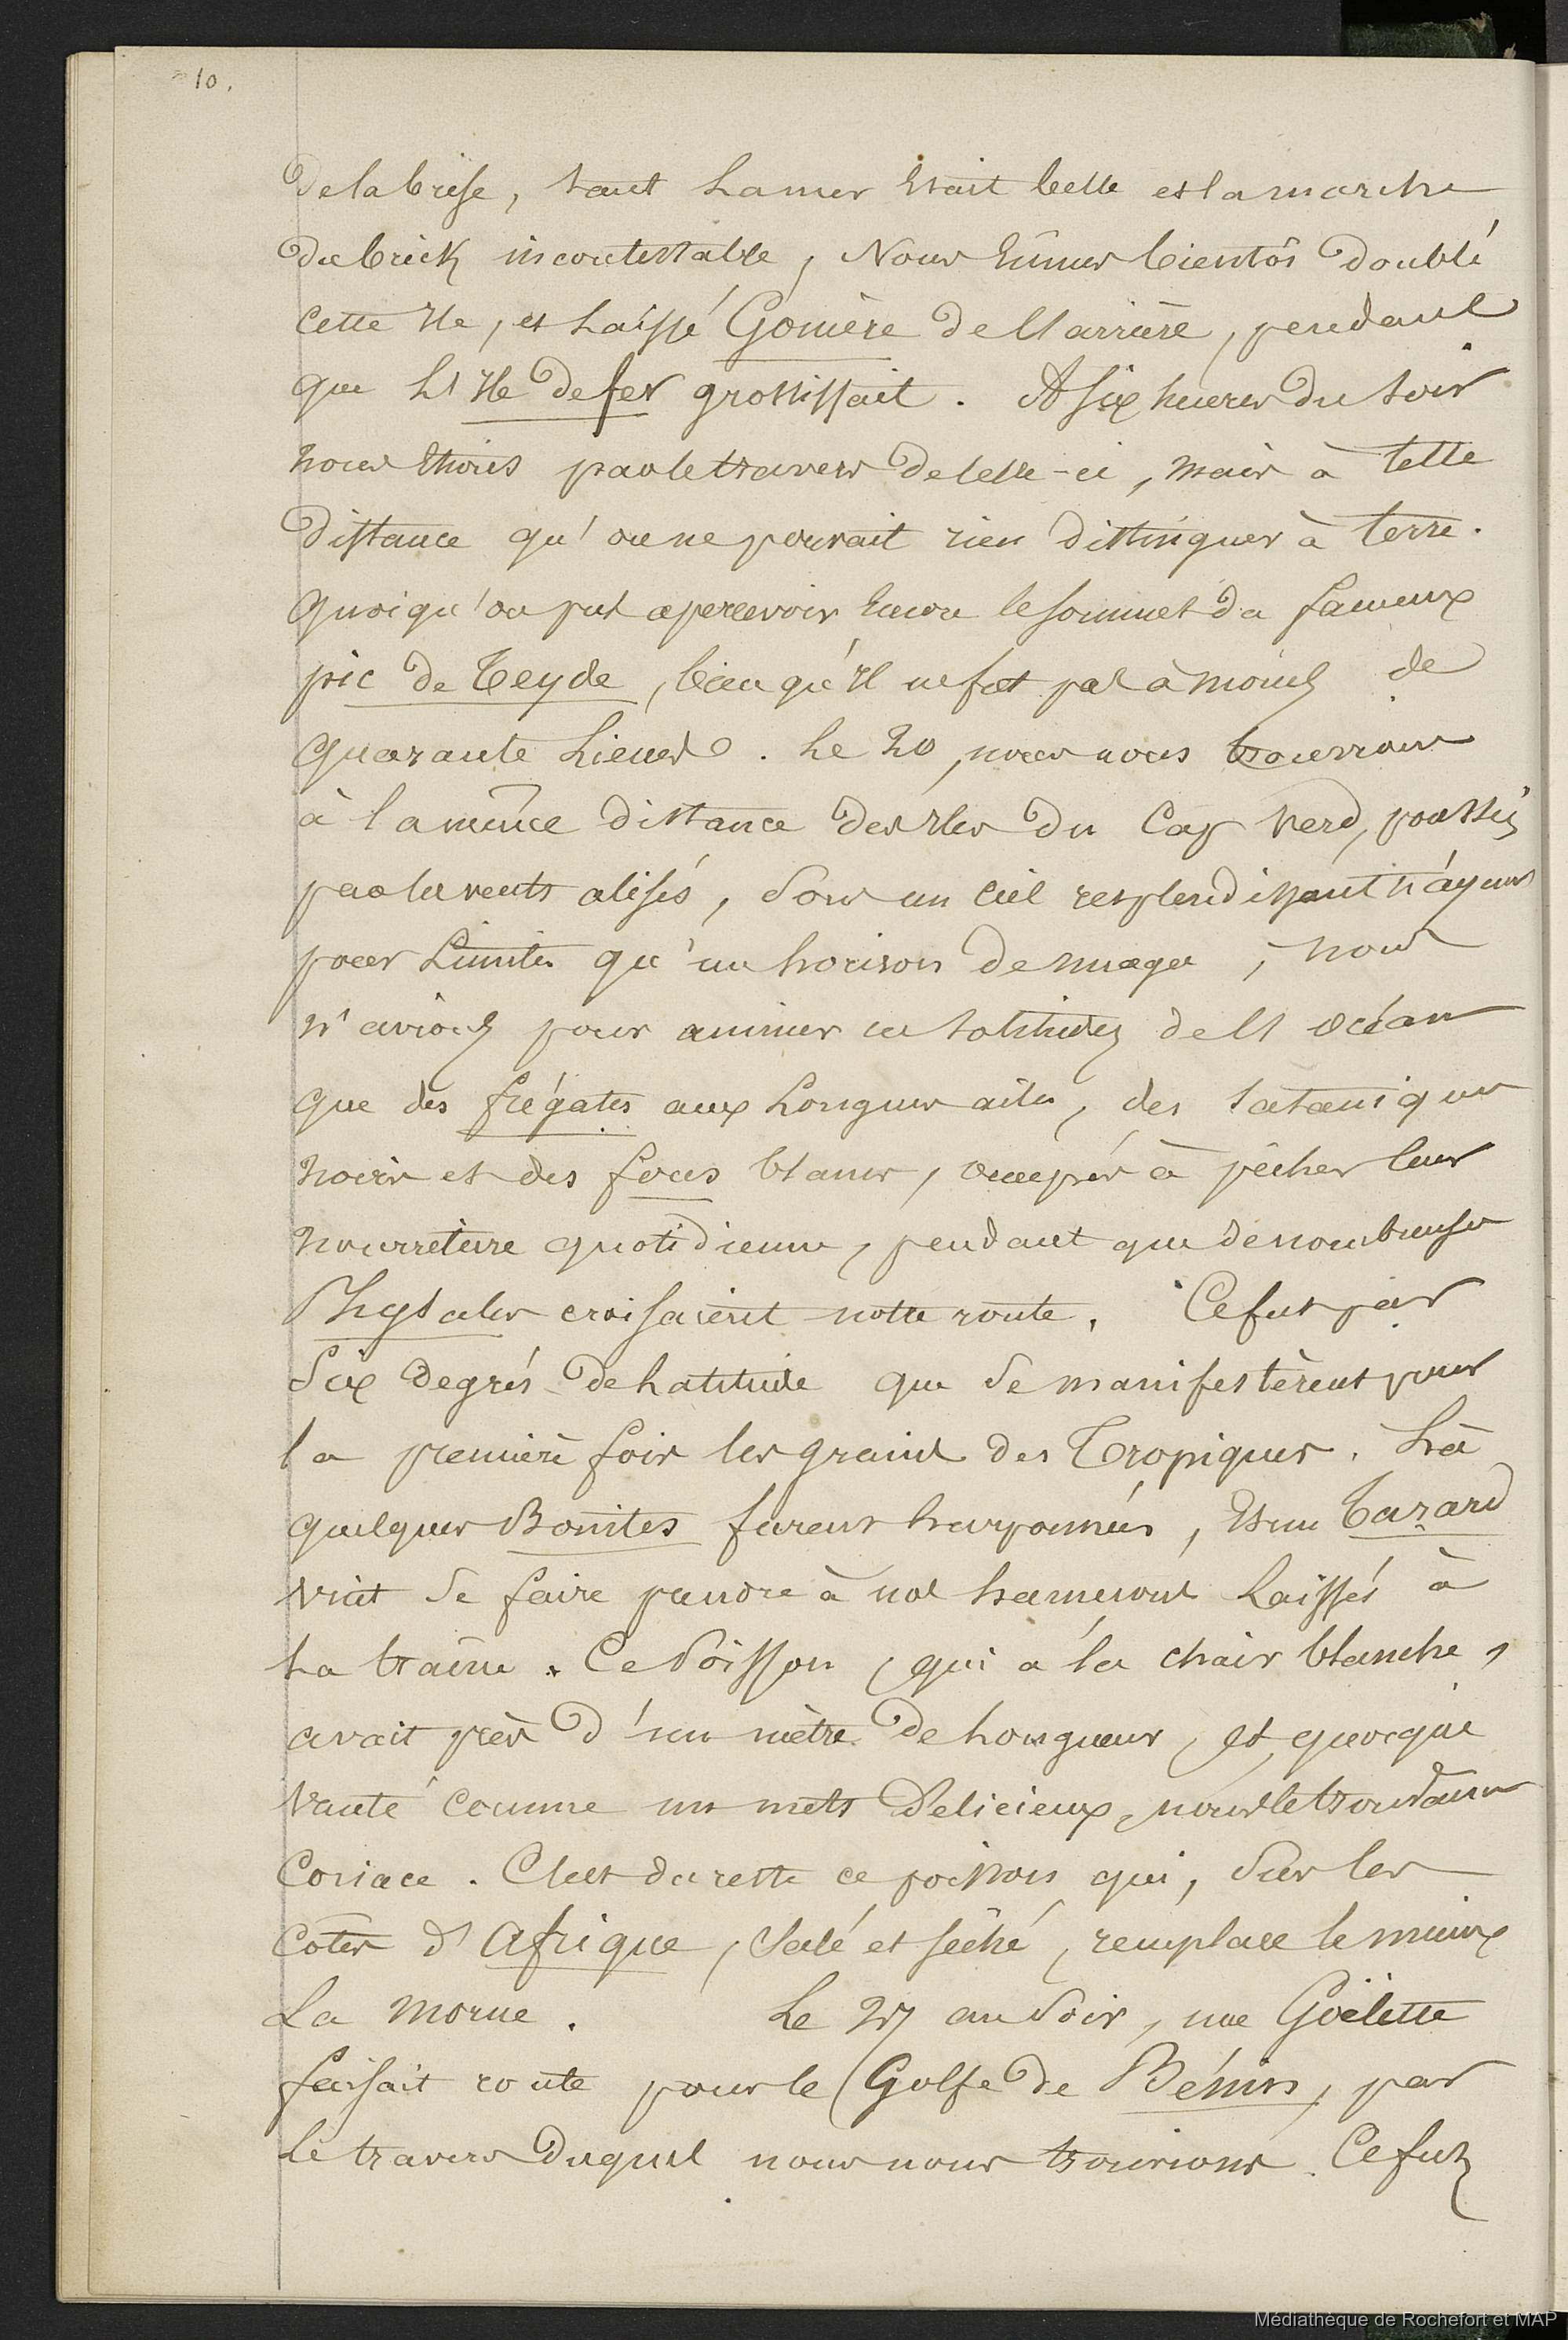 10.
de la brise, tant la mer était belle et la marche
du brick incontestable, Nous eûmes bientôt doublé
cette Ile, et laissé Gomère de l'arrière, pendant
que l'Ile de fer grossissait. A six heures du soir
nous étions par le travers de celle-ci, mais à telle
distance qu'on ne pouvait rien distinguer à terre.
quoiqu'on put apercevoir encore le sommet du fameux
pic de Teyde, bien qu'il ne fut pas à moins de
quarante lieues. Le 20, nous nous trouvions
à la même distance des Iles du Cap Verd, poussés
par les vents alisés, sous un ciel resplendissant n'ayant
pour limites qu'un horison de nuages, nous
n'avions pour animer ces solitudes de l'océan
que des frégates aux longues ailes, des sataniques
noirs et des fous blancs, occupés à pêcher leur
nourriture quotidienne, pendant que de nombreuses
Physales croisaient notre route. Ce fut par
six degrés de latitude que se manifestèrent pour
la première fois les grains des Tropiques. Là
quelques Bonites furent harponnées, et un Tazard
vint se faire prendre à nos hameçons laissés à
la traîne. Ce Poisson, qui a la chair blanche,
avait près d'un mètre de longueur, et quoique
vanté comme un mets délicieux, nous le trouvâmes
coriace. C'est du reste ce poisson qui, sur les
côtes d'Afrique, salé et séché, remplace le mieux
la morue. Le 27 au soir, une Goëlette
faisait route pour le Golfe de Bénin, par
le travers duquel nous nous trouvions. Ce fut
Médiathèque de Rochefort et MAP